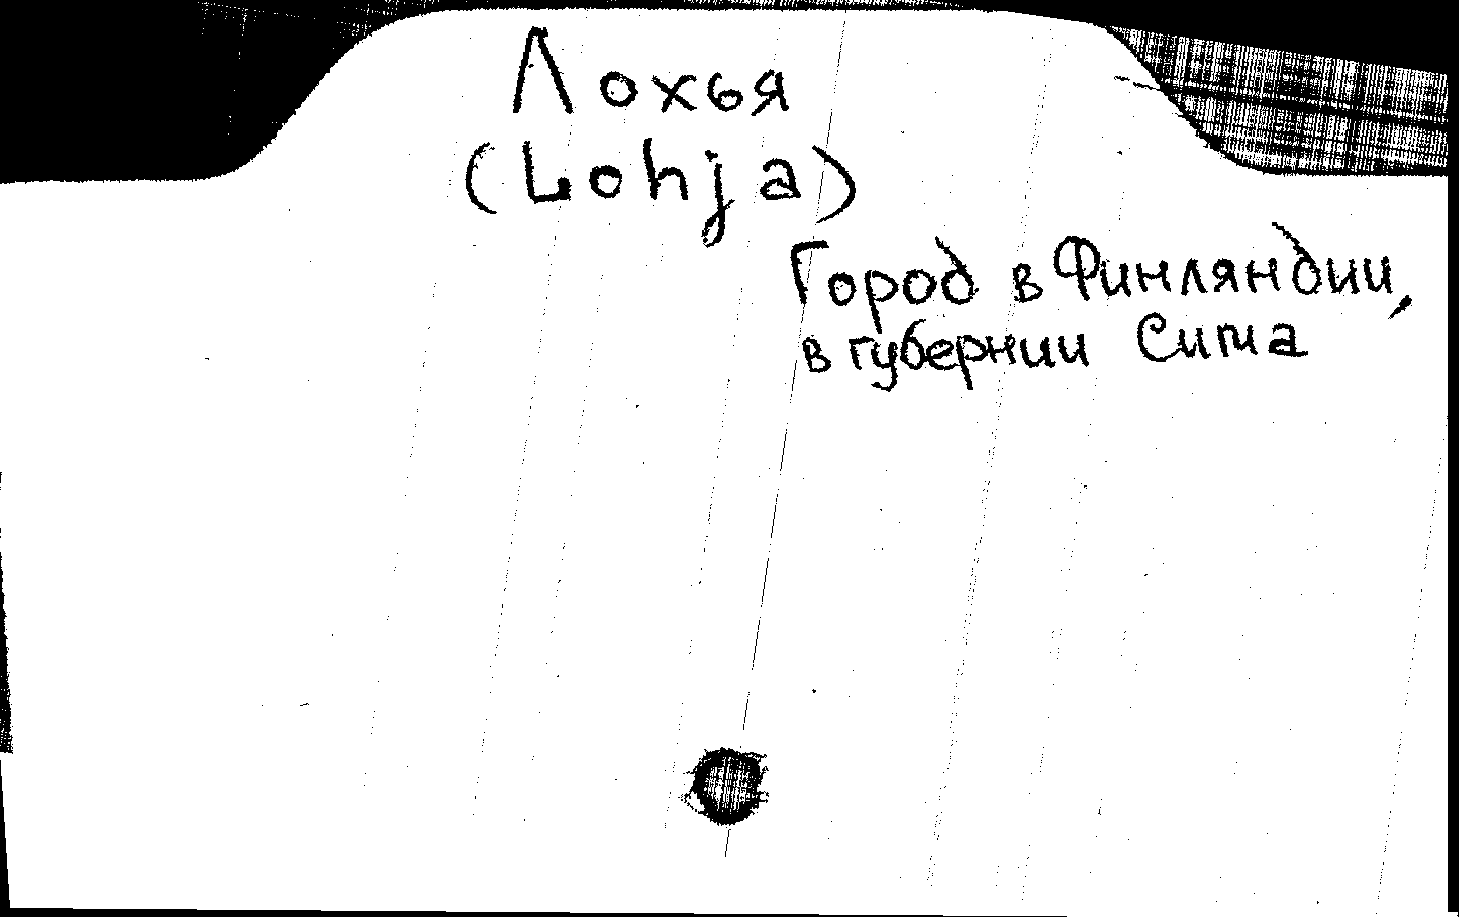 Лохья
(Lohja)
Город в Финляндии,
в губернии Сита